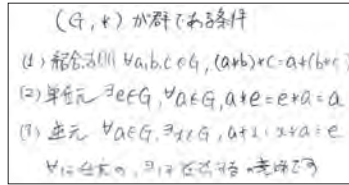 (G, *) が群である条件
(1) 結合法則 ∀a,b,c∈G, (a*b)*c=a*(b*c)
(2) 単位元 ∃e∈G, ∀a∈G, a*e=e*a=a
(3) 逆元 ∀a∈G, ∃x∈G, a*x=x*a=e
∀は全ての, ∃は存在するの意味です